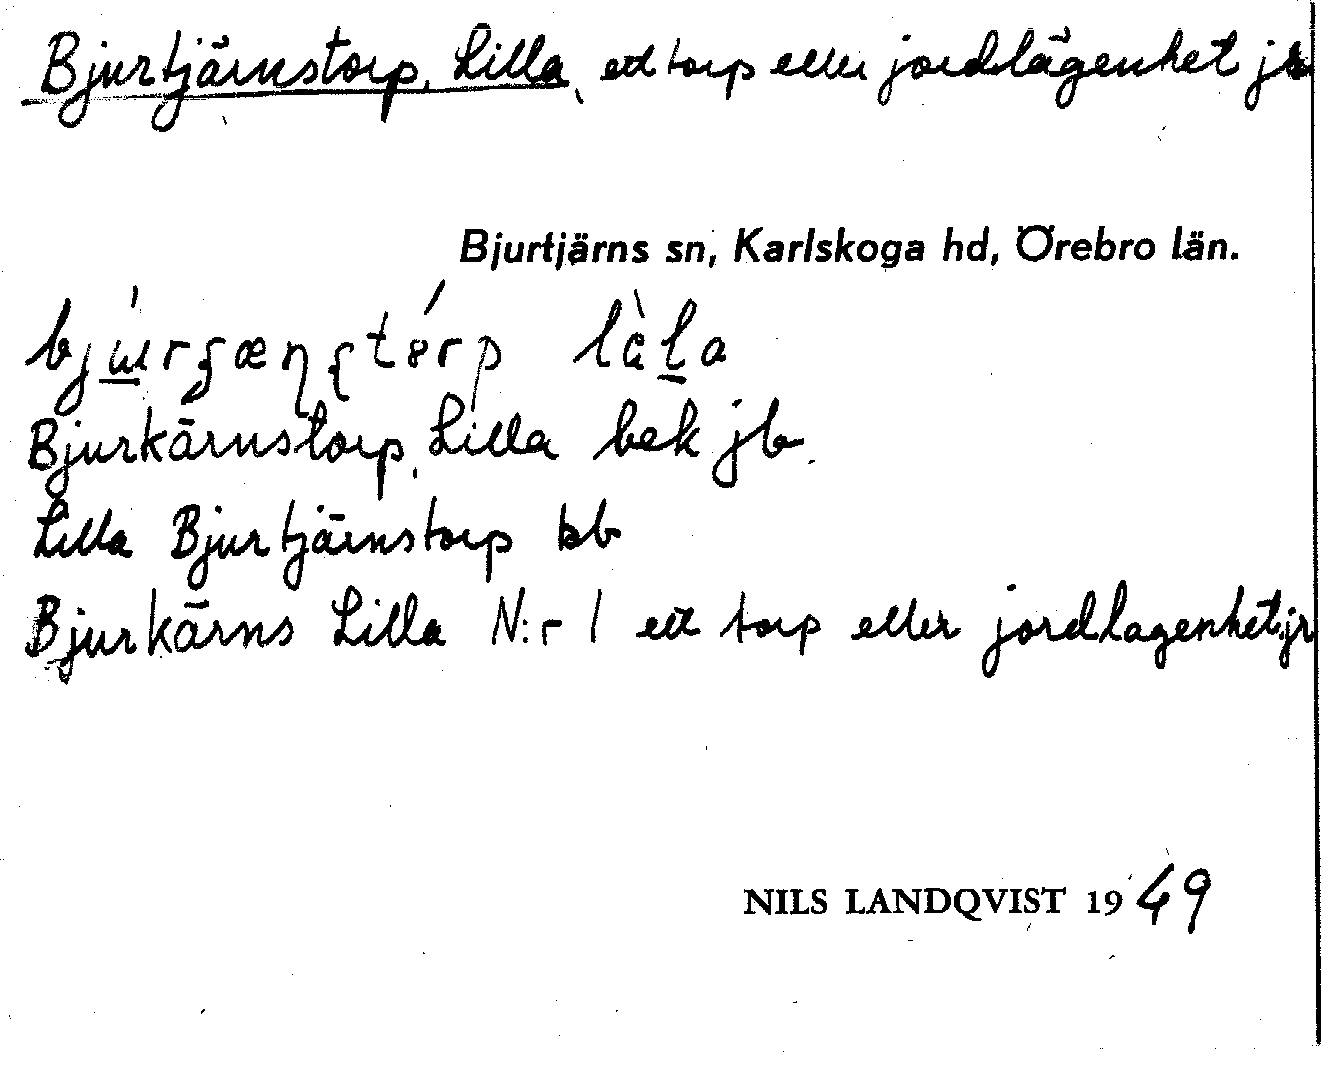 Bjurtjärnstorp, Lilla, ett torp eller jordlägenhet jr
Bjurtjärns sn, Karlskoga hd, Örebro län.
Bjurkärnstorp, Lilla bek jb.
Lilla Bjurtjärnstorp kb
Bjurkärns Lilla N:r 1 ett torp eller jordlagenhet jr
NILS LANDQVIST 1949